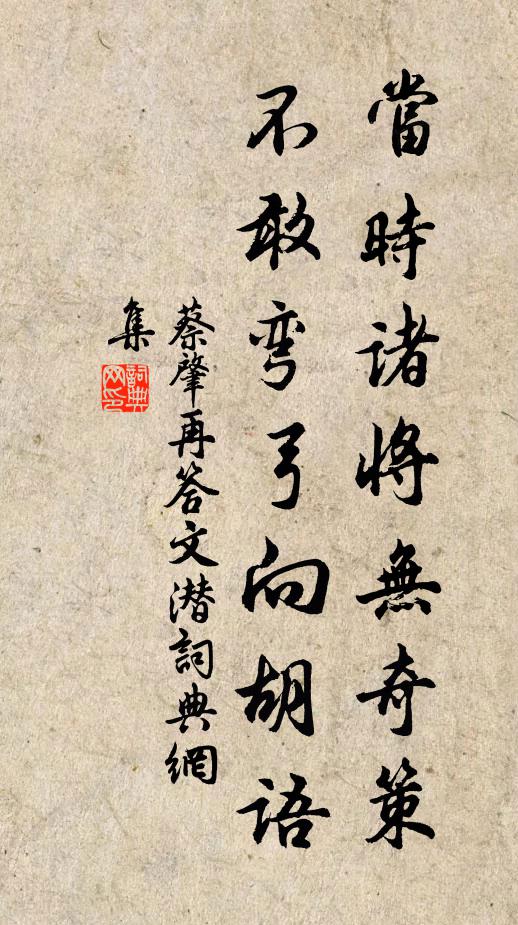 當時諸將無奇策
不敢彎弓向胡語
蔡肇再答文潜詞典網
集
詞典
网印